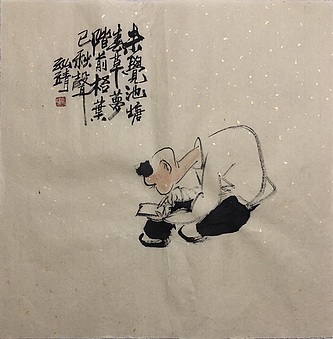 未覺池塘
春草夢
階前梧葉
已秋聲